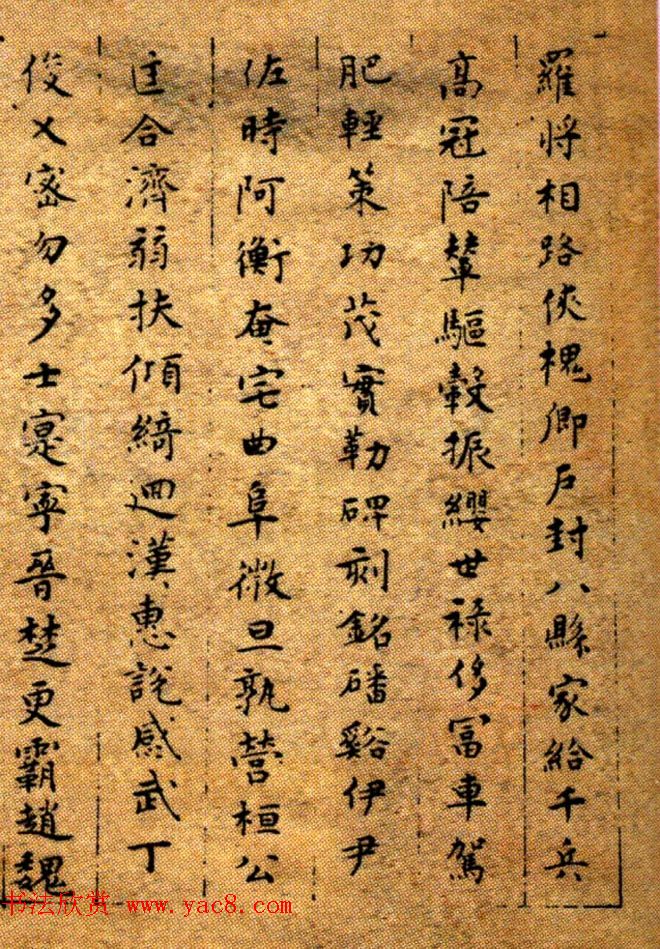 羅將相路俠槐卿户封八縣家給千兵
高冠陪輦驅轂振纓世禄侈冨車駕
肥輕策功茂實勒碑刻銘磻谿伊尹
佐時阿衡奄宅曲阜微旦孰營桓公
匡合濟弱扶傾綺迴漢惠說感武丁
俊乂宻勿多士寔寜晉楚更霸趙魏
书法欣赏-www.yac8.com